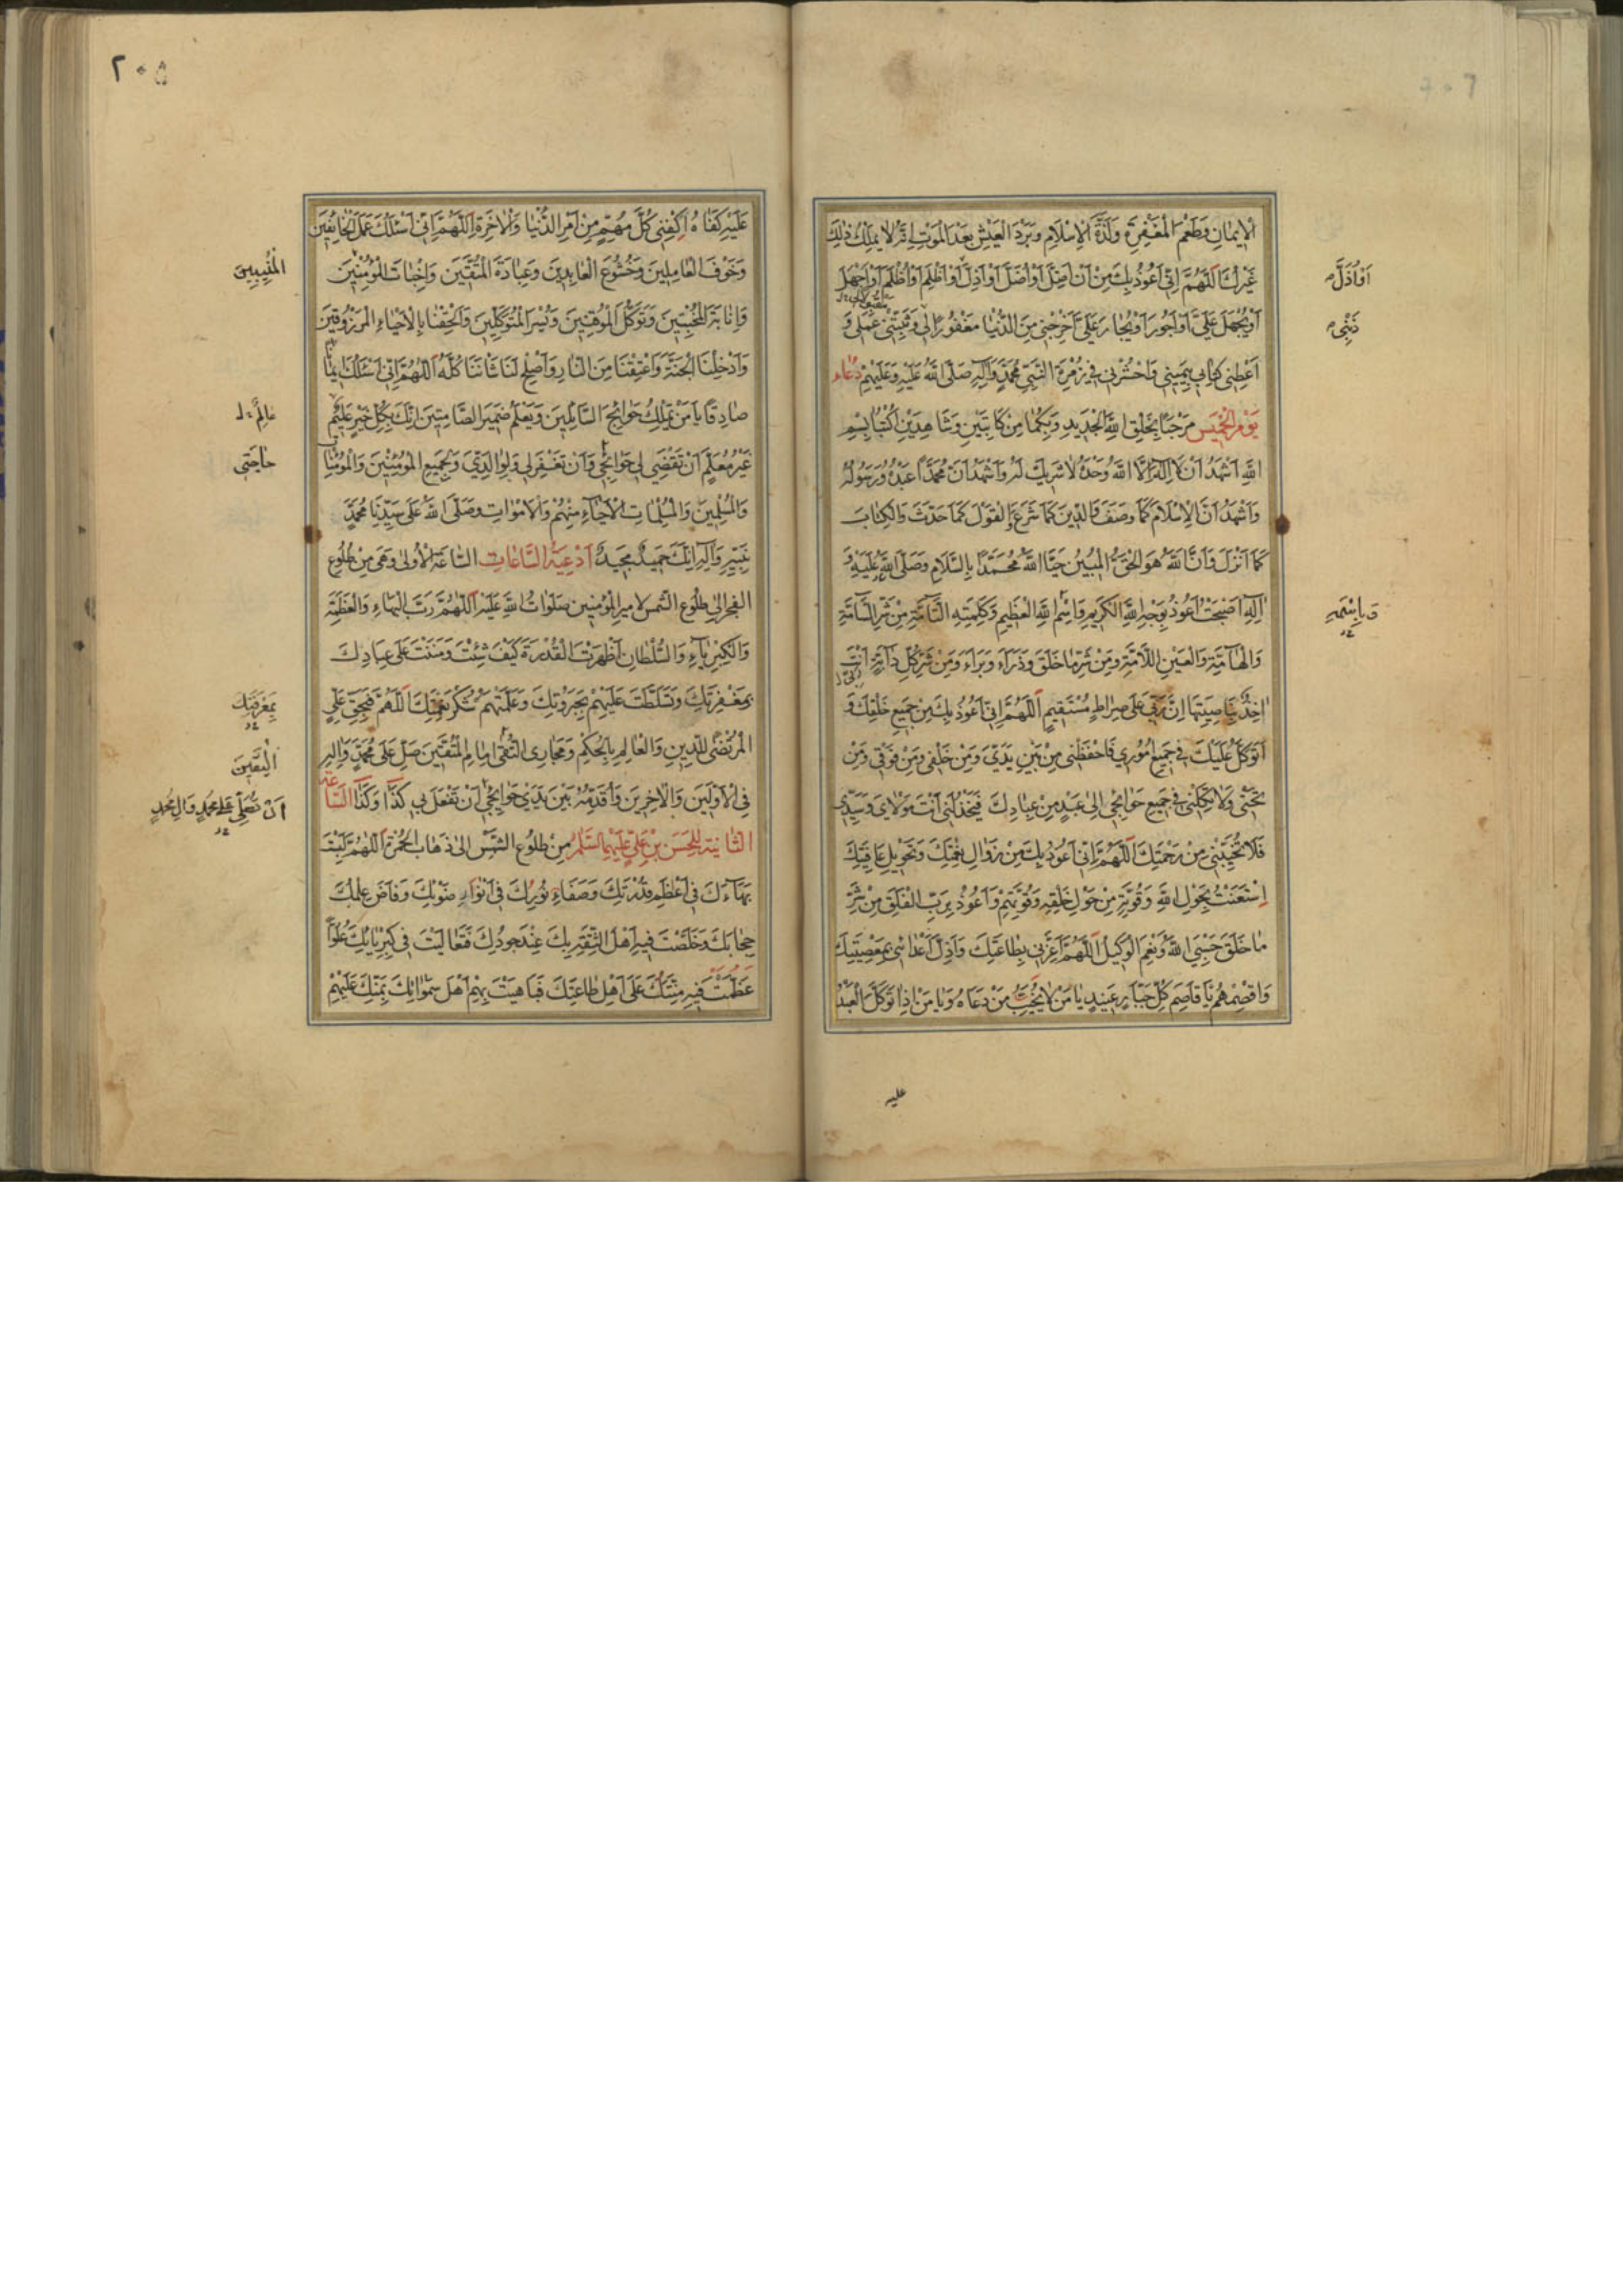 الْإِيمَانِ وَطَعْمَ الْمَغْفِرَةِ وَلَذَّةَ الْإِسْلَامِ وَبَرْدَ الْعَيْشِ بَعْدَ الْمَوْتِ إِنَّهُ لَا يَمْلِكُ ذٰلِكَ
غَيْرُكَ اَللّٰهُمَّ اِنّي اَعُوذُ بِكَ مِنْ اَنْ اَضِلَّ اَوْ اُضَلَّ اَوْ اَذِلَّ اَوْ اَظْلِمَ اَوْ اُظْلَمَ اَوْ اَجْهَلَ
اَوْ اُذَلَّ
اَوْ يُجْهَلَ عَلَيَّ اَوْ اَجُورَ اَوْ يُجَارَ عَلَيَّ اَخْرِجْني مِنَ الدُّنْيَا مَغْفُورًا لي وَثَبِّتْني عَمَلي وَ
ذَنْبي
اَعْطِني كِتَابي بِيَميني وَاحْشُرْني في زُمْرَةِ النَّبِيِّ مُحَمَّدٍ وَآلِهِ صَلَّى اللّٰهُ عَلَيْهِ وَعَلَيْهِمْ دُعَاء
يَوْمِ الْخَميسِ مَرْحَبًا بِخَلْقِ اللّٰهِ الْجَديدِ وَبِكُمَا مِنْ كَاتِبَيْنِ وَشَاهِدَيْنِ اُكْتُبَا بِسْمِ
اللّٰهِ اَشْهَدُ اَنْ لَا اِلٰهَ اِلَّا اللّٰهُ وَحْدَهُ لَا شَريكَ لَهُ وَاَشْهَدُ اَنَّ مُحَمَّدًا عَبْدُهُ وَرَسُولُهُ
وَاَشْهَدُ اَنَّ الْاِسْلَامَ كَمَا وَصَفَ وَالدّينَ كَمَا شَرَعَ وَالْقَوْلَ كَمَا حَدَّثَ وَالْكِتَابَ
كَمَا اَنْزَلَ وَاَنَّ اللّٰهَ هُوَ الْحَقُّ الْمُبينُ حَيَّا اللّٰهُ مُحَمَّدًا بِالسَّلَامِ وَصَلَّى اللّٰهُ عَلَيْهِ وَ
آلِهِ اَصْبَحْتُ اَعُوذُ بِوَجْهِ اللّٰهِ الْكَريمِ وَاسْمِ اللّٰهِ الْعَظيمِ وَكَلِمَتِهِ التَّامَّةِ مِنْ شَرِّ السَّامَّةِ
وَبِاسْمِهِ
وَالْهَامَّةِ وَالْعَيْنِ اللَّامَّةِ وَمِنْ شَرِّ مَا خَلَقَ وَذَرَاَ وَبَرَاَ وَمِنْ شَرِّ كُلِّ دَابَّةٍ اَنْتَ
آخِذٌ بِنَاصِيَتِهَا اِنَّ رَبّي عَلٰى صِرَاطٍ مُسْتَقيمٍ اَللّٰهُمَّ اِنّي اَعُوذُ بِكَ مِنْ جَميعِ خَلْقِكَ وَ
اَتَوَكَّلُ عَلَيْكَ في جَميعِ اُمُوري فَاحْفَظْني مِنْ بَيْنِ يَدَيَّ وَمِنْ خَلْفي وَمِنْ فَوْقي وَمِنْ
تَحْتي وَلَا تَكِلْني في جَميعِ حَوَائِجي اِلٰى عَبْدٍ مِنْ عِبَادِكَ فَيَخْذُلَني اَنْتَ مَوْلَايَ وَسَيِّدي
فَلَا تُخَيِّبْني مِنْ رَحْمَتِكَ اَللّٰهُمَّ اِنّي اَعُوذُ بِكَ مِنْ زَوَالِ نِعْمَتِكَ وَتَحْويلِ عَافِيَتِكَ
اِسْتَعَنْتُ بِحَوْلِ اللّٰهِ وَقُوَّتِهِ مِنْ حَوْلِ خَلْقِهِ وَقُوَّتِهِمْ وَاَعُوذُ بِرَبِّ الْفَلَقِ مِنْ شَرِّ
مَا خَلَقَ حَسْبِيَ اللّٰهُ وَنِعْمَ الْوَكيلُ اَللّٰهُمَّ اَعِزَّني بِطَاعَتِكَ وَاَذِلَّ اَعْدَائي بِمَعْصِيَتِكَ
وَاقْصِمْهُمْ يَا قَاصِمَ كُلِّ جَبَّارٍ عَنيدٍ يَا مَنْ لَا يُخَيِّبُ مَنْ دَعَاهُ وَيَا مَنْ اِذَا تَوَكَّلَ الْعَبْدُ
عليه
٢٠٥
عَلَيْهِ كَفَاهُ اِكْفِني كُلَّ مُهِمٍّ مِنْ اَمْرِ الدُّنْيَا وَالْآخِرَةِ اَللّٰهُمَّ اِنّي اَسْئَلُكَ عَمَلَ الْخَائِفينَ
وَخَوْفَ الْعَامِلينَ وَخُشُوعَ الْعَابِدينَ وَعِبَادَةَ الْمُتَّقينَ وَاِخْبَاتَ الْمُؤْمِنينَ
الْمُنيبينَ
وَاِنَابَةَ الْمُخْبِتينَ وَتَوَكُّلَ الْمُوقِنينَ وَبُشْرَ الْمُتَوَكِّلينَ وَاَلْحِقْنَا بِالْاَحْيَاءِ الْمَرْزُوقينَ
وَاَدْخِلْنَا الْجَنَّةَ وَاَعْتِقْنَا مِنَ النَّارِ وَاَصْلِحْ لَنَا شَانَنَا كُلَّهُ اَللّٰهُمَّ اِنّي اَسْئَلُكَ ايمَانًا
صَادِقًا يَا مَنْ يَمْلِكُ حَوَائِجَ السَّائِلينَ وَيَعْلَمُ ضَميرَ الصَّامِتينَ اِنَّكَ بِكُلِّ خَيْرٍ عَليمٌ
عَالِمٌ
غَيْرُ مُعَلَّمٍ اَنْ تَقْضِيَ لي حَوَائِجي وَاَنْ تَغْفِرَ لي وَلِوَالِدَيَّ وَلِجَميعِ الْمُؤْمِنينَ وَالْمُؤْمِنَاتِ
حَاجَتي
وَالْمُسْلِمينَ وَالْمُسْلِمَاتِ الْاَحْيَاءِ مِنْهُمْ وَالْاَمْوَاتِ وَصَلَّى اللّٰهُ عَلٰى سَيِّدِنَا مُحَمَّدٍ
نَبِيِّهِ وَآلِهِ اِنَّكَ حَميدٌ مَجيدٌ اَدْعِيَةُ السَّاعَاتِ السَّاعَةُ الْاُولٰى وَهِيَ مِنْ طُلُوعِ
الْفَجْرِ اِلٰى طُلُوعِ الشَّمْسِ لِاَميرِ الْمُؤْمِنينَ صَلَوَاتُ اللّٰهِ عَلَيْهِ اَللّٰهُمَّ رَبَّ الْبَهَاءِ وَالْعَظَمَةِ
وَالْكِبْرِيَاءِ وَالسُّلْطَانِ اَظْهَرْتَ الْقُدْرَةَ كَيْفَ شِئْتَ وَمَنَنْتَ عَلٰى عِبَادِكَ
بِمَغْفِرَتِكَ وَتَسَلَّطْتَ عَلَيْهِمْ بِجَبَرُوتِكَ وَعَلَّمْتَهُمْ شُكْرَ نِعْمَتِكَ اَللّٰهُمَّ فَبِحَقِّ عَلِيٍّ
بِمَعْرِفَتِكَ
الْمُرْتَضٰى لِلدّينِ وَالْعَالِمِ بِالْحُكْمِ وَمَجَارِي التُّقٰى اِمَامِ الْمُتَّقينَ صَلِّ عَلٰى مُحَمَّدٍ وَآلِهِ
الْيَقينِ
فِي الْاَوَّلينَ وَالْآخِرينَ وَاُقَدِّمُهُ بَيْنَ يَدَيْ حَوَائِجي اَنْ تَفْعَلَ بي كَذَا وَكَذَا السَّاعَة
اَنْ تُصَلِّيَ عَلٰى مُحَمَّدٍ وَآلِ مُحَمَّدٍ
الثَّانِيَةُ لِلْحَسَنِ بْنِ عَلِيٍّ عَلَيْهِمَا السَّلَامُ مِنْ طُلُوعِ الشَّمْسِ اِلٰى ذَهَابِ الْحُمْرَةِ اَللّٰهُمَّ لَبِسْتَ
بَهَاءَكَ في اَعْظَمِ قُدْرَتِكَ وَصَفَاءِ نُورِكَ في اَنْوَارِ ضَوْئِكَ وَفَاضَ عِلْمُكَ
حِجَابَكَ وَخَلَّصْتَ فيهِ اَهْلَ الثِّقَةِ بِكَ عِنْدَ جُودِكَ فَتَعَالَيْتَ في كِبْرِيَائِكَ عُلُوًّا
عَظُمَتْ فيهِ مِنَّتُكَ عَلٰى اَهْلِ طَاعَتِكَ فَبَاهَيْتَ بِهِمْ اَهْلَ سَمٰوَاتِكَ بِمَنِّكَ عَلَيْهِمْ